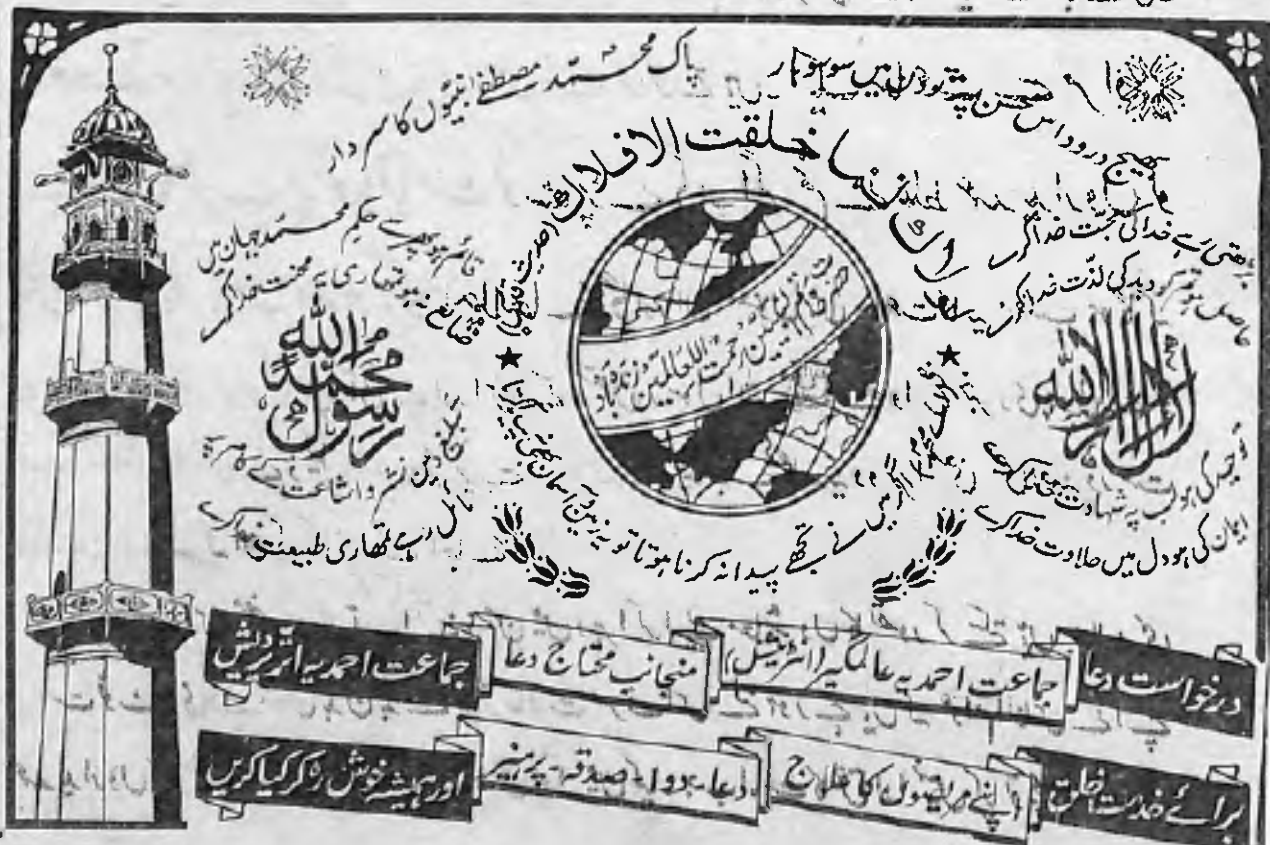 بھیج درود اس محسن پر تو دن میں سو سو بار
پاک محمد مصطفےٰ نبیوں کا سردار
لولاک لما خلقت الافلاک (حدیث قدسی)
بڑھتی رہے خدا کی محبت خدا کرے
حاصل ہو تم کو دید کی لذت خدا کرے
قائم ہو پھر سے حکم محمد جہان میں
ضائع نہ ہو تمھاری یہ محنت خدا کرے
لا الہ الا اللہ
محمد رسول اللہ
خاتم النبیین رحمت اللعالمین زندہ باد
توحید کی ہو لب پہ شہادت خدا کرے
ایمان کی ہو دل میں حلاوت خدا کرے
تبلیغ دین نشر و اشاعت کے کام پر
مائل رہے تمھاری طبیعت خدا کرے
اگر میں نے تجھے پیدا نہ کرنا ہوتا تو یہ زمین و آسمان بھی پیدا نہ کرتا
درخواست دعا
جماعت احمدیہ عالمگیر (انٹرنیشنل)
منجانب محتاج دعا
جماعت احمدیہ اتر پردیش
برائے خدمت خلق
اپنے مریضوں کا علاج
دعا - دوا - صدقہ - پرہیز
اور ہمیشہ خوش رہ کر کیا کریں